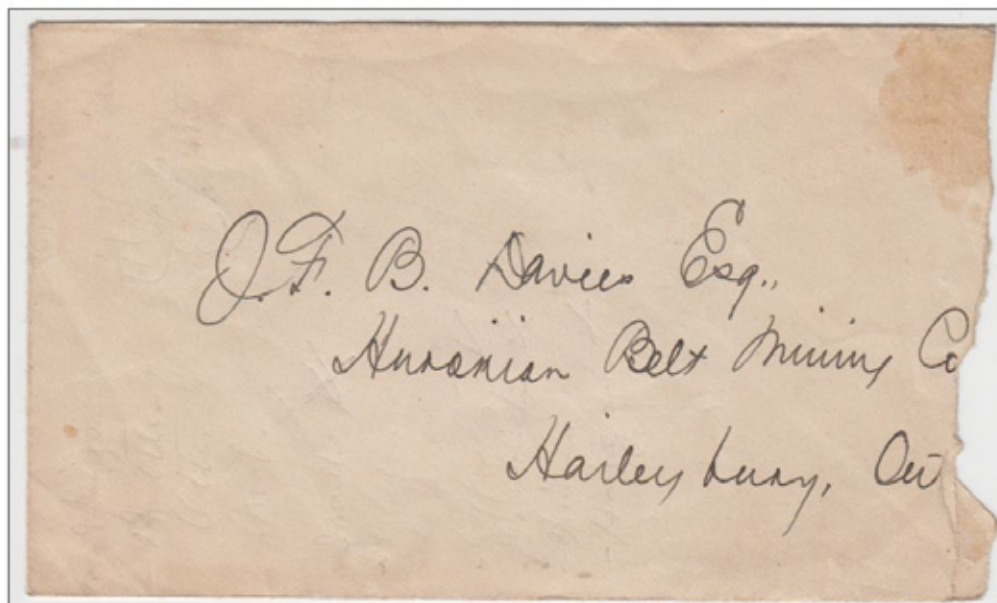 J. F. B. Davies Esq.,
Huronian Belt Mining Co
Haileybury, Ont